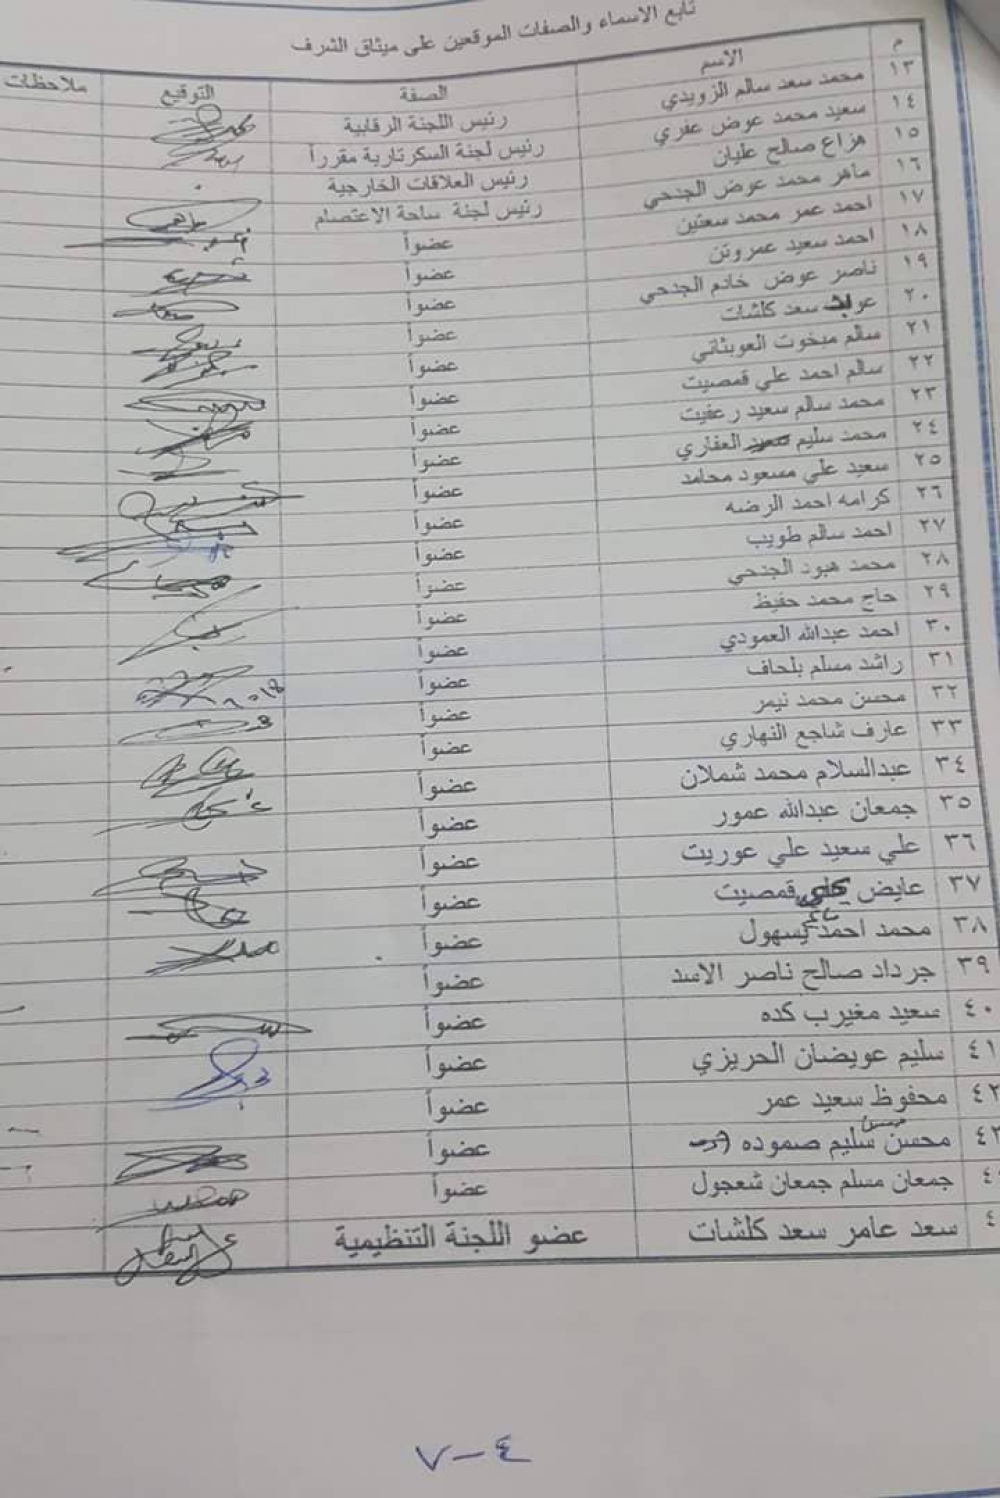 تابع الاسماء والصفات الموقعين على ميثاق الشرف
م الاسم الصفة التوقيع ملاحظات
١٣ محمد سعد سالم الزويدي رئيس اللجنة الرقابية
١٤ سعيد محمد عوض عفري رئيس لجنة السكرتارية مقرراً
١٥ هزاع صالح عليان رئيس العلاقات الخارجية
١٦ ماهر محمد عوض الجدحي رئيس لجنة ساحة الاعتصام
١٧ احمد عمر محمد سعتين عضواً
١٨ احمد سعيد عمروتن عضواً
١٩ ناصر عوض خادم الجدحي عضواً
٢٠ سعد كلشات عضواً
٢١ سالم مبخوت العوبثاني عضواً
٢٢ سالم احمد علي قمصيت عضواً
٢٣ محمد سالم سعيد رعفيت عضواً
٢٤ محمد سليم العفاري عضواً
٢٥ سعيد علي مسعود محامد عضواً
٢٦ كرامه احمد الرضه عضواً
٢٧ احمد سالم طويب عضواً
٢٨ محمد هبود الجدحي عضواً
٢٩ حاج محمد حفيظ عضواً
٣٠ احمد عبدالله العمودي عضواً
٣١ راشد مسلم بلحاف عضواً
٣٢ محسن محمد نيمر عضواً
٣٣ عارف شاجع النهاري عضواً
٣٤ عبدالسلام محمد شملان عضواً
٣٥ جمعان عبدالله عمور عضواً
٣٦ علي سعيد علي عوريت عضواً
٣٧ عايض قمصيت عضواً
٣٨ محمد احمد يسهول عضواً
٣٩ جرداد صالح ناصر الاسد عضواً
٤٠ سعيد مغيرب كده عضواً
٤١ سليم عويضان الحريزي عضواً
٤٢ محفوظ سعيد عمر عضواً
٤٣ محسن سليم صموده عضواً
٤ جمعان مسلم جمعان شعجول عضواً
٤ سعد عامر سعد كلشات عضو اللجنة التنظيمية
٤-٧